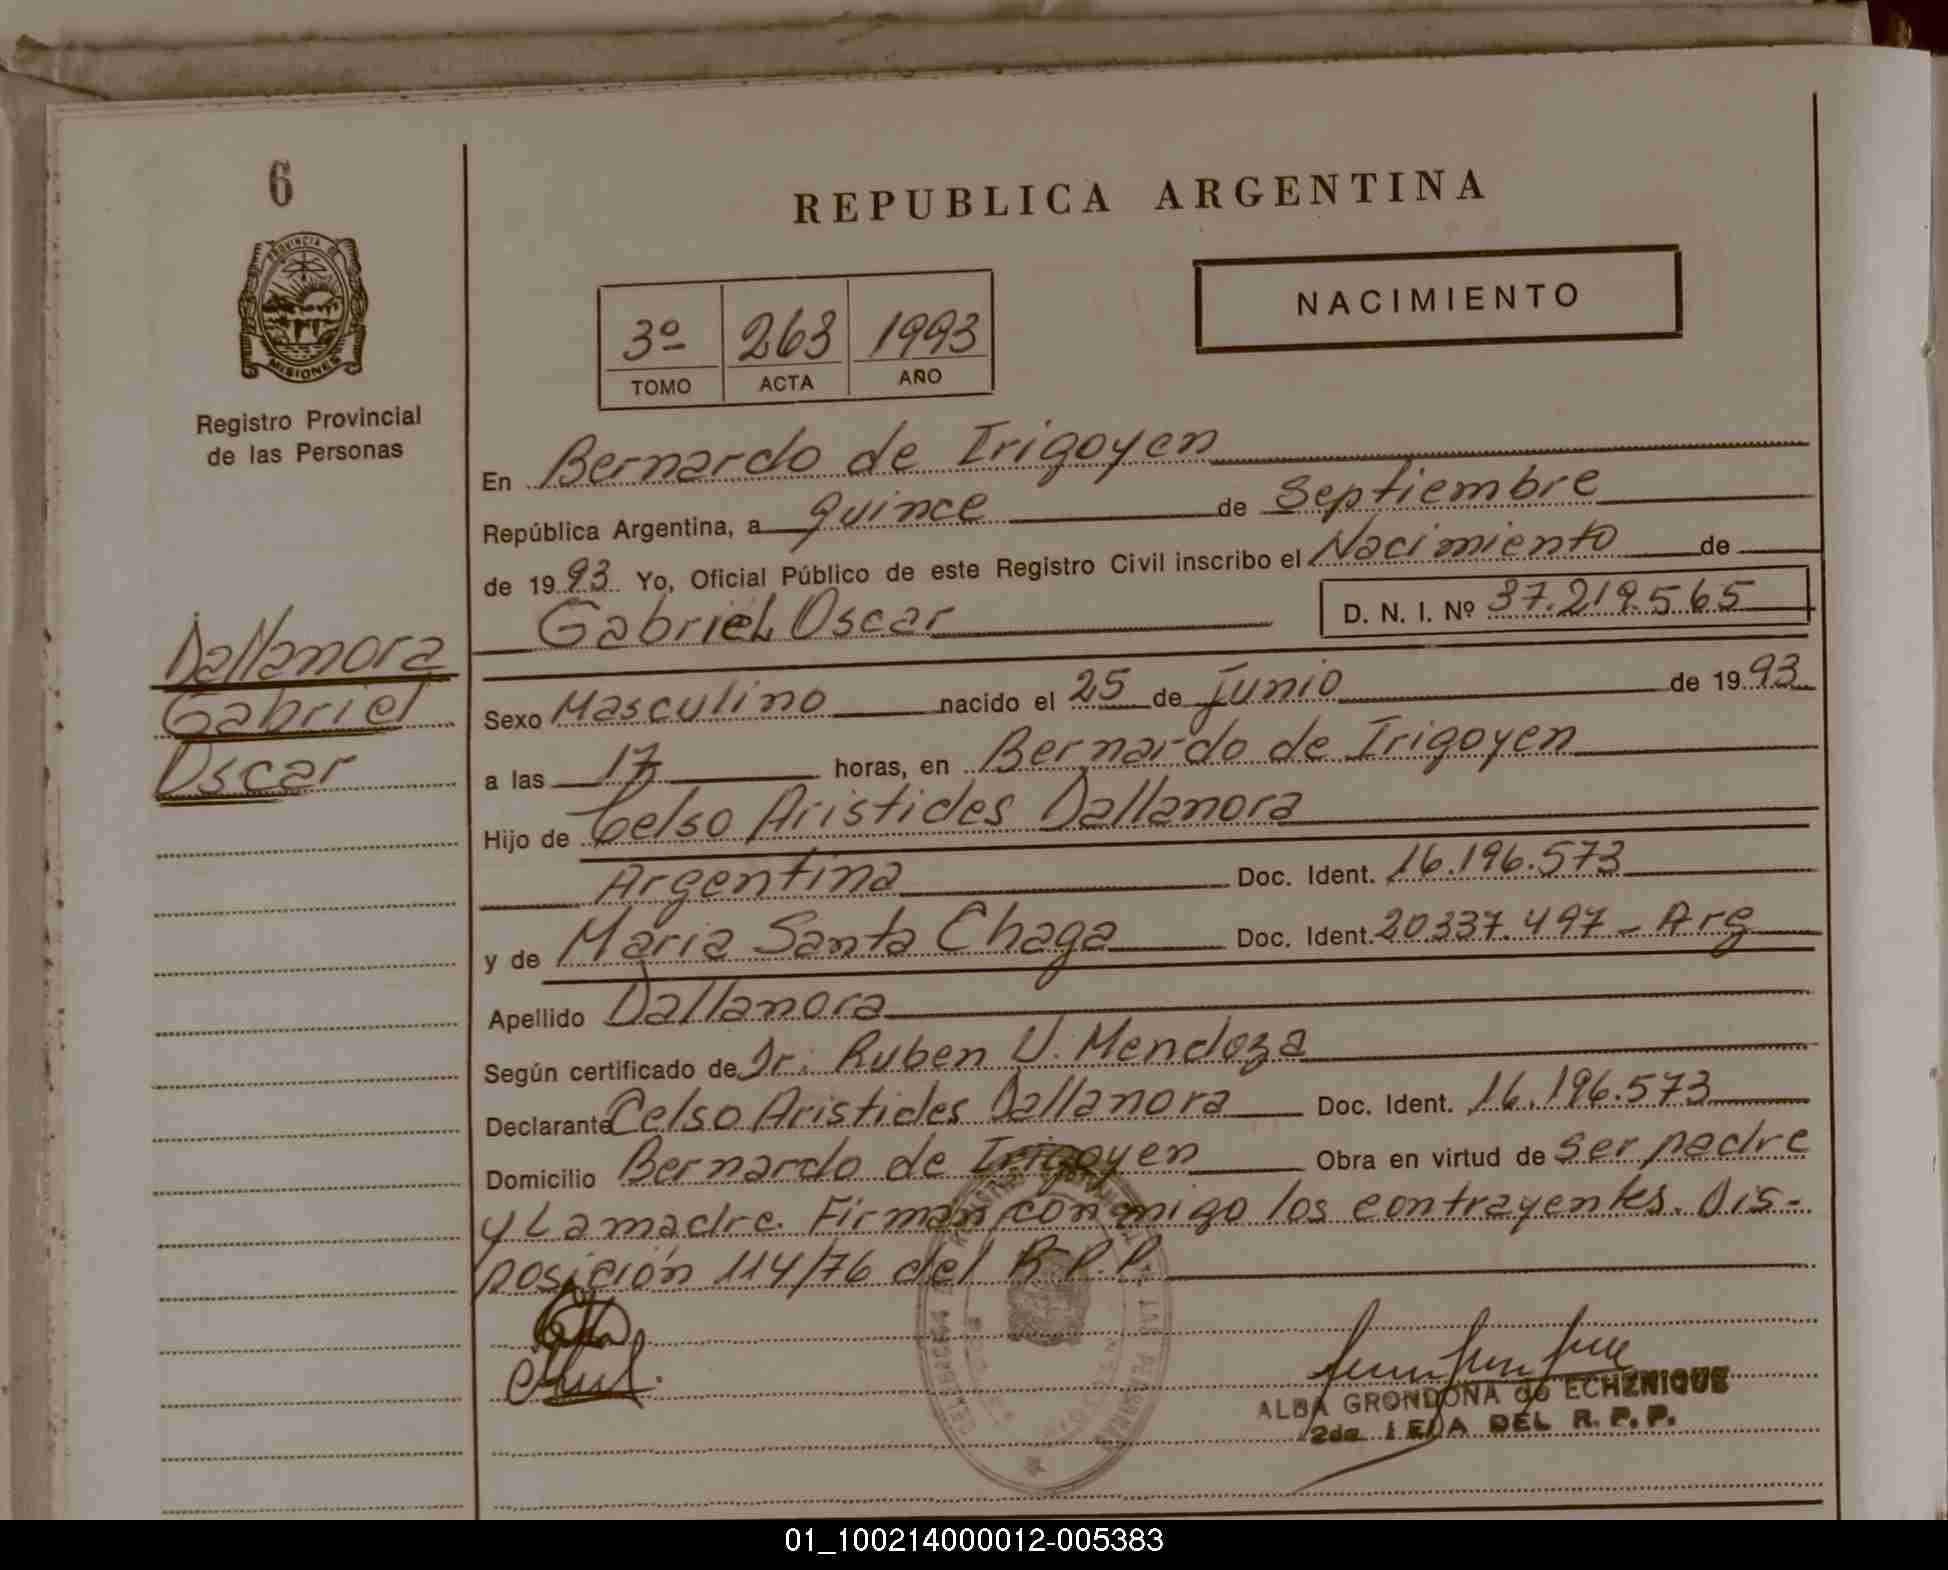 6
REPUBLICA ARGENTINA
PROVINCIA DE
MISIONES
Registro Provincial
de las Personas
NACIMIENTO
3º 263 1993
TOMO ACTA AÑO
En Bernardo de Irigoyen
República Argentina, a quince de Septiembre
de 1993 Yo, Oficial Público de este Registro Civil inscribo el Nacimiento de
Gabriel Oscar D. N. I. Nº 37.219.565
Dallanora
Gabriel
Oscar
Sexo Masculino nacido el 25 de Junio de 1993
a las 17 horas, en Bernardo de Irigoyen
Hijo de Celso Aristides Dallanora
Argentina Doc. Ident. 16.196.573
y de Maria Santa Chaga Doc. Ident. 20.337.497 - Arg
Apellido Dallanora
Según certificado de Dr. Ruben U. Mendoza
Declarante Celso Aristides Dallanora Doc. Ident. 16.196.573
Domicilio Bernardo de Irigoyen Obra en virtud de ser padre
y La madre. Firman conmigo los contrayentes. Dis-
posición 114/76 del R.P.P.
ALBA GRONDONA de ECHENIQUE
2da DEL R. P. P.
01_100214000012-005383